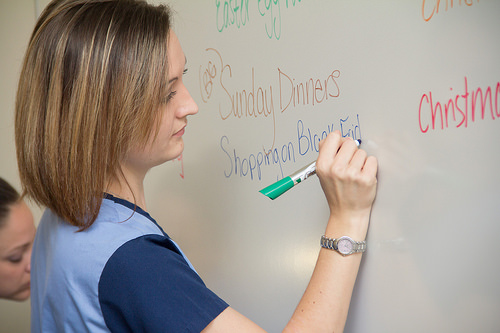 Easter Egg
Sunday Dinners
Shopping on Black Frid
Christma